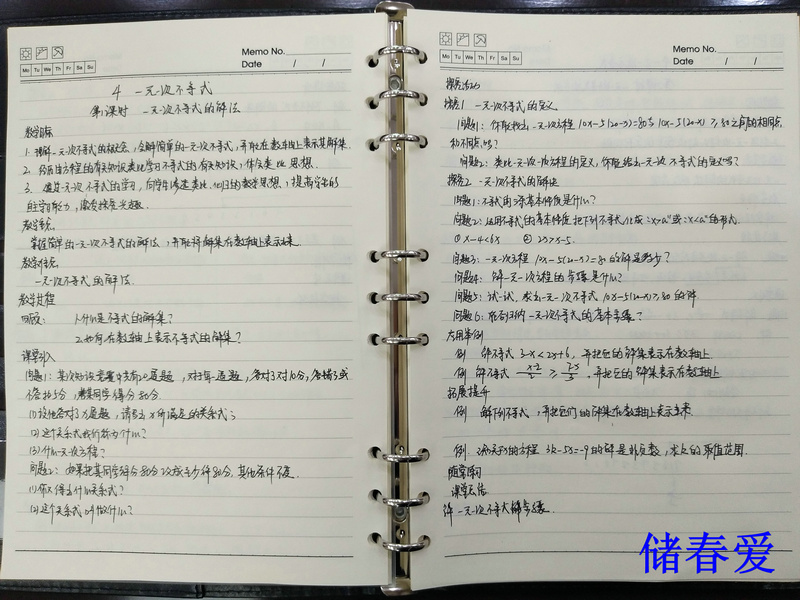 Memo No.
Mo Tu We Th Fr Sa Su
Date / /
4 一元一次不等式
第1课时 一元一次不等式的解法
教学目标
1. 理解一元一次不等式的概念，会解简单的一元一次不等式，并能在数轴上表示其解集.
2. 经历由方程的有关知识类比学习不等式的有关知识，体会类比思想.
3. 通过一元一次不等式的学习，向学生渗透类比、化归的数学思想，提高学生的
自主学习能力，激发探究兴趣.
教学重点
掌握简单的一元一次不等式的解法，并能将解集在数轴上表示出来.
教学难点
一元一次不等式的解法.
教学过程
回顾： 1.什么是不等式的解集？
2.如何在数轴上表示不等式的解集？
课堂引入
问题1：某次知识竞赛共有20道题，对于每一道题，答对了对10分，答错了或
不答扣5分，某同学得分80分
(1)设他答对了x道题，请写出x所满足的关系式；
(2)这个关系式我们称为什么？
(3)什么一元一次方程？
问题2：如果把某同学得分80分改成至少得80分，其他条件不变.
(1)你又得出什么关系式？
(2)这个关系式叫做什么？
Memo No.
Mo Tu We Th Fr Sa Su
Date / /
探究活动
探究1 一元一次不等式的定义
问题1：你能找出一元一次方程10x-5(20-x)=80与10x-5(20-x)≥80之间的相同点
和不同点吗？
问题2：类比一元一次方程的定义，你能给出一元一次不等式的定义吗？
探究2 一元一次不等式的解法
问题1：不等式的三条基本性质是什么？
问题2：运用不等式的基本性质把下列不等式化成：x>a"或：x<a"的形式.
① x-4<6x ② 2x>x-5.
问题3：一元一次方程10x-5(20-x)=80的解是多少？
问题4：解一元一次方程的步骤是什么？
问题5：试一试，求出一元一次不等式10x-5(20-x)≥80的解.
问题6：能否归纳一元一次不等式的基本步骤？
应用举例
例 解不等式 3-x<2x+6，并把它的解集表示在数轴上
例 解不等式 x-2/2 ≥ 7-x/3，并把它的解集表示在数轴上
拓展提升
例 解下列不等式，并把它们的解集在数轴上表示出来.
例 3x-5x=-9的解是非负数，求 的取值范围.
随堂练习
课堂总结
解一元一次不等式解步骤.
储春爱